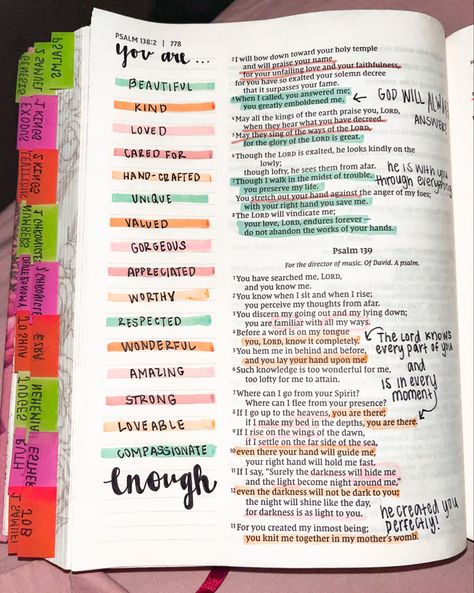 PSALMS
2 SAMUEL
GENESIS
1 KINGS
EXODUS
2 KINGS
LEVITICUS
1 CHRONICLES
NUMBERS
2 CHRONICLES
DEUTERONOMY
EZRA
JOSHUA
NEHEMIAH
JUDGES
ESTHER
RUTH
JOB
1 SAMUEL
PSALM 138:2 | 778
you are ...
BEAUTIFUL
KIND
LOVED
CARED FOR
HAND-CRAFTED
UNIQUE
VALUED
GORGEOUS
APPRECIATED
WORTHY
RESPECTED
WONDERFUL
AMAZING
STRONG
LOVEABLE
COMPASSIONATE
enough
2 I will bow down toward your holy temple
and will praise your name
for your unfailing love and your faithfulness,
for you have so exalted your solemn decree
that it surpasses your fame.
3 When I called, you answered me;
you greatly emboldened me.
GOD WILL ALWAYS
ANSWER!
4 May all the kings of the earth praise you, LORD,
when they hear what you have decreed.
5 May they sing of the ways of the LORD,
for the glory of the LORD is great.
6 Though the LORD is exalted, he looks kindly on the
lowly;
though lofty, he sees them from afar.
7 Though I walk in the midst of trouble,
you preserve my life.
he is with you
through everything
You stretch out your hand against the anger of my foes;
with your right hand you save me.
8 The LORD will vindicate me;
your love, LORD, endures forever —
do not abandon the works of your hands.
Psalm 139
For the director of music. Of David. A psalm.
1 You have searched me, LORD,
and you know me.
2 You know when I sit and when I rise;
you perceive my thoughts from afar.
3 You discern my going out and my lying down;
you are familiar with all my ways.
4 Before a word is on my tongue
you, LORD, know it completely.
5 You hem me in behind and before,
and you lay your hand upon me.
6 Such knowledge is too wonderful for me,
too lofty for me to attain.
The Lord knows
every part of you
and
is in every
moment
7 Where can I go from your Spirit?
Where can I flee from your presence?
8 If I go up to the heavens, you are there;
if I make my bed in the depths, you are there.
9 If I rise on the wings of the dawn,
if I settle on the far side of the sea,
10 even there your hand will guide me,
your right hand will hold me fast.
11 If I say, "Surely the darkness will hide me
and the light become night around me,"
12 even the darkness will not be dark to you;
the night will shine like the day,
for darkness is as light to you.
he created you
perfectly!
13 For you created my inmost being;
you knit me together in my mother's womb.